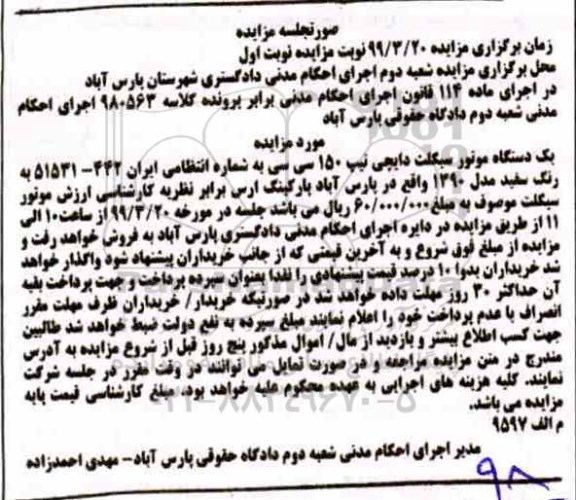 صورتجلسه مزایده
زمان برگزاری مزایده ۹۹/۳/۲۰ نوبت مزایده نوبت اول
محل برگزاری مزایده شعبه دوم اجرای احکام مدنی دادگستری شهرستان پارس آباد
در اجرای ماده ۱۱۴ قانون اجرای احکام مدنی برابر پرونده کلاسه ۹۸۰۵۶۳ اجرای احکام
مدنی شعبه دوم دادگاه حقوقی پارس آباد
مورد مزایده
یک دستگاه موتور سیکلت دایچی تیپ ۱۵۰ سی سی به شماره انتظامی ایران ۴۴۲- ۵۱۵۳۱ به
رنگ سفید مدل ۱۳۹۰ واقع در پارس آباد پارکینگ ارس برابر نظریه کارشناسی ارزش موتور
سیکلت موصوف به مبلغ ۶۰/۰۰۰/۰۰۰ ریال می باشد جلسه در مورخه ۹۹/۳/۲۰ از ساعت ۱۰ الی
۱۱ از طریق مزایده در دایره اجرای احکام مدنی دادگستری پارس آباد به فروش خواهد رفت و
مزایده از مبلغ فوق شروع و به آخرین قیمتی که از جانب خریداران پیشنهاد شود واگذار خواهد
شد خریداران بدوا ۱۰ درصد قیمت پیشنهادی را نقدا بعنوان سپرده پرداخت و جهت پرداخت بقیه
آن حداکثر ۳۰ روز مهلت داده خواهد شد در صورتیکه خریدار/ خریداران ظرف مهلت مقرر
انصراف یا عدم پرداخت خود را اعلام نمایند مبلغ سپرده به نفع دولت ضبط خواهد شد طالبین
جهت کسب اطلاع بیشتر و بازدید از مال/ اموال مذکور پنج روز قبل از شروع مزایده به آدرس
مندرج در متن مزایده مراجعه و در صورت تمایل می توانند در وقت مقرر در جلسه شرکت
نمایند. کلیه هزینه های اجرایی به عهده محکوم علیه خواهد بود. مبلغ کارشناسی قیمت پایه
مزایده می باشد.
م الف ۹۵۹۷
مدیر اجرای احکام مدنی شعبه دوم دادگاه حقوقی پارس آباد- مهدی احمدزاده
۹۸
۰۲۱-۸۸۳۴۹۶۷۰-۵